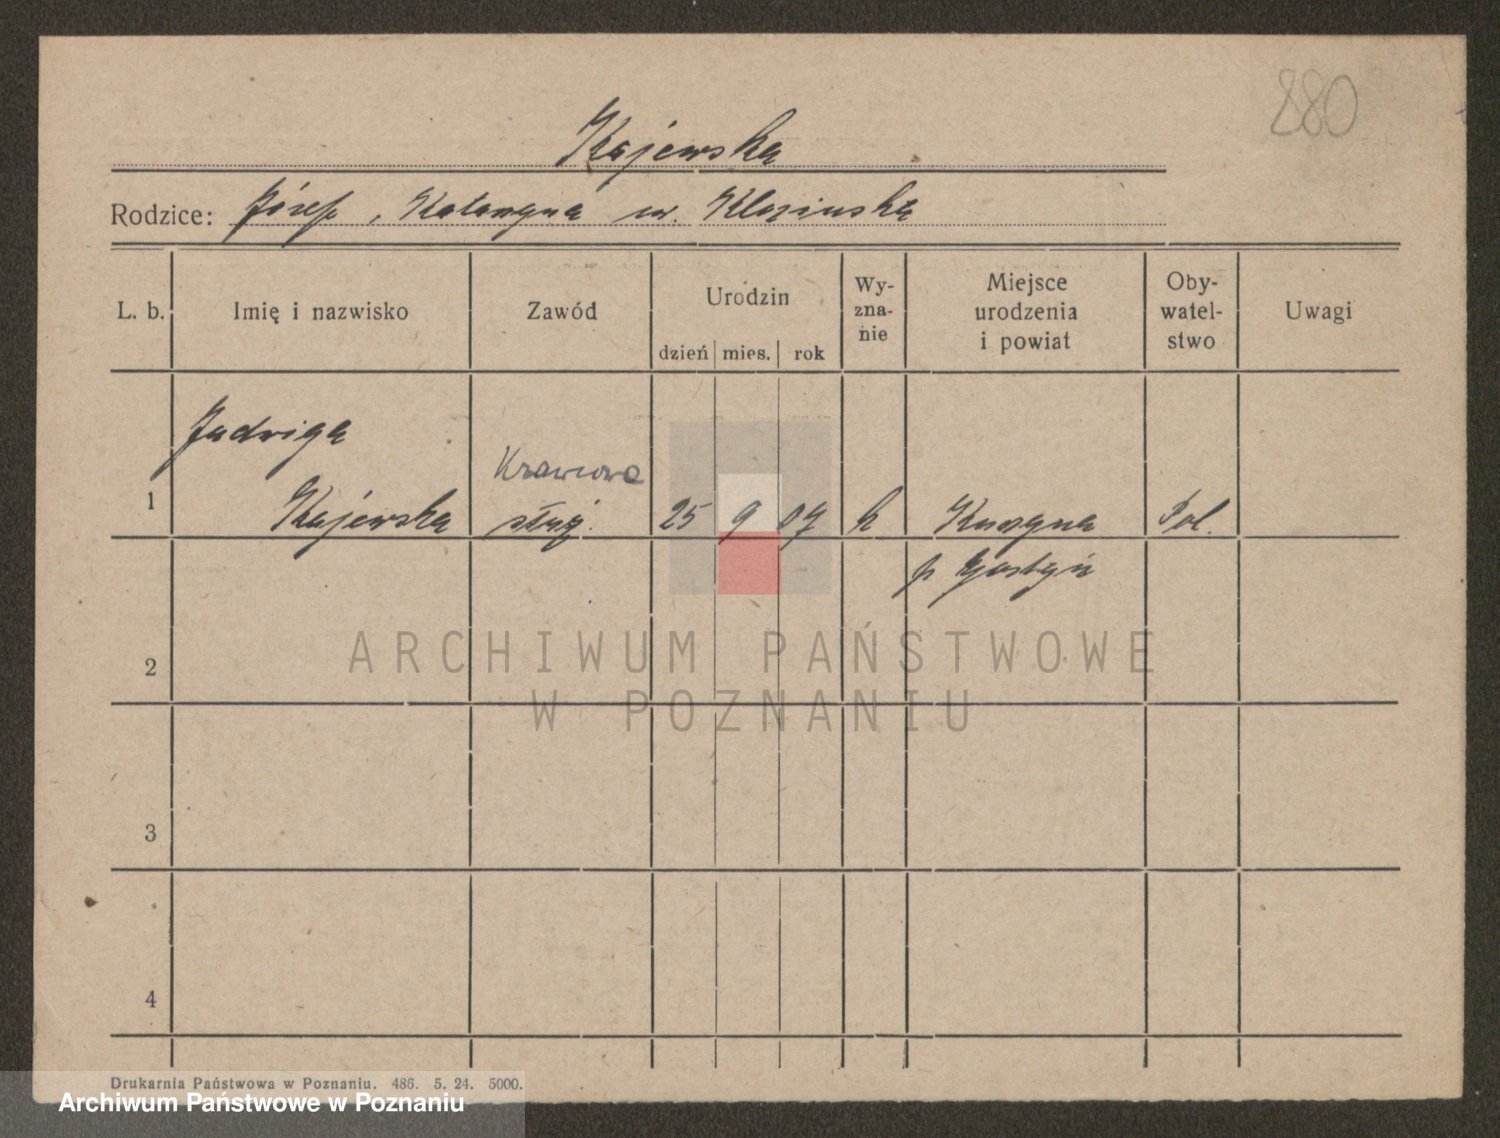 880
Kajewska
Rodzice: Józef, Katarzyna ur. Klosinska
L. b. Imię i nazwisko Zawód Urodzin dzień mies. rok Wy-zna-nie Miejsce urodzenia i powiat Oby-watel-stwo Uwagi
Jadwiga
Krawcowa
1 Kajewska służ. 25 9 07 k Pol.
p Gostyń
ARCHIWUM PAŃSTWOWE
2
W POZNANIU
3
4
Drukarnia Państwowa w Poznaniu. 486. 5. 24. 5000.
Archiwum Państwowe w Poznaniu